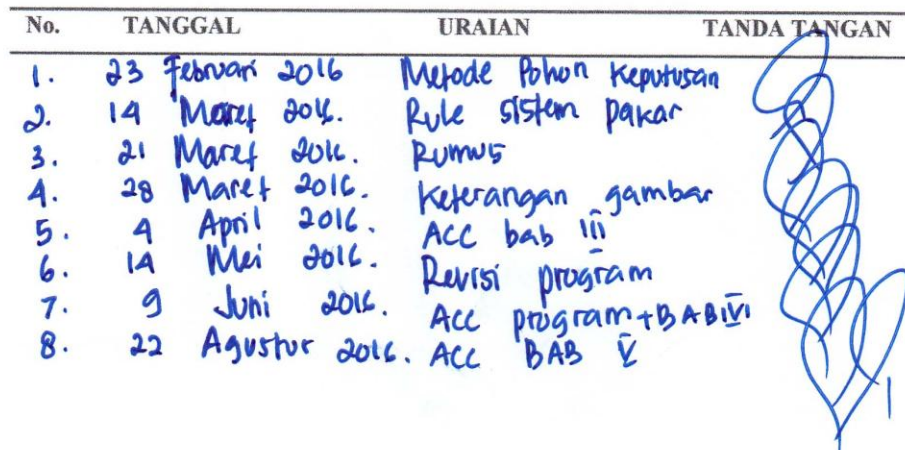 No. TANGGAL URAIAN TANDA TANGAN
1. 23 Februari 2016 Metode Pohon Keputusan
2. 14 Maret 2016. Rule sistem pakar
3. 21 Maret 2016. Rumus
4. 28 Maret 2016. Keterangan gambar
5. 4 April 2016. ACC bab III
6. 14 Mei 2016. Revisi program
7. 9 Juni 2016. Acc program + BAB
8. 22 Agustus 2016. ACC BAB V